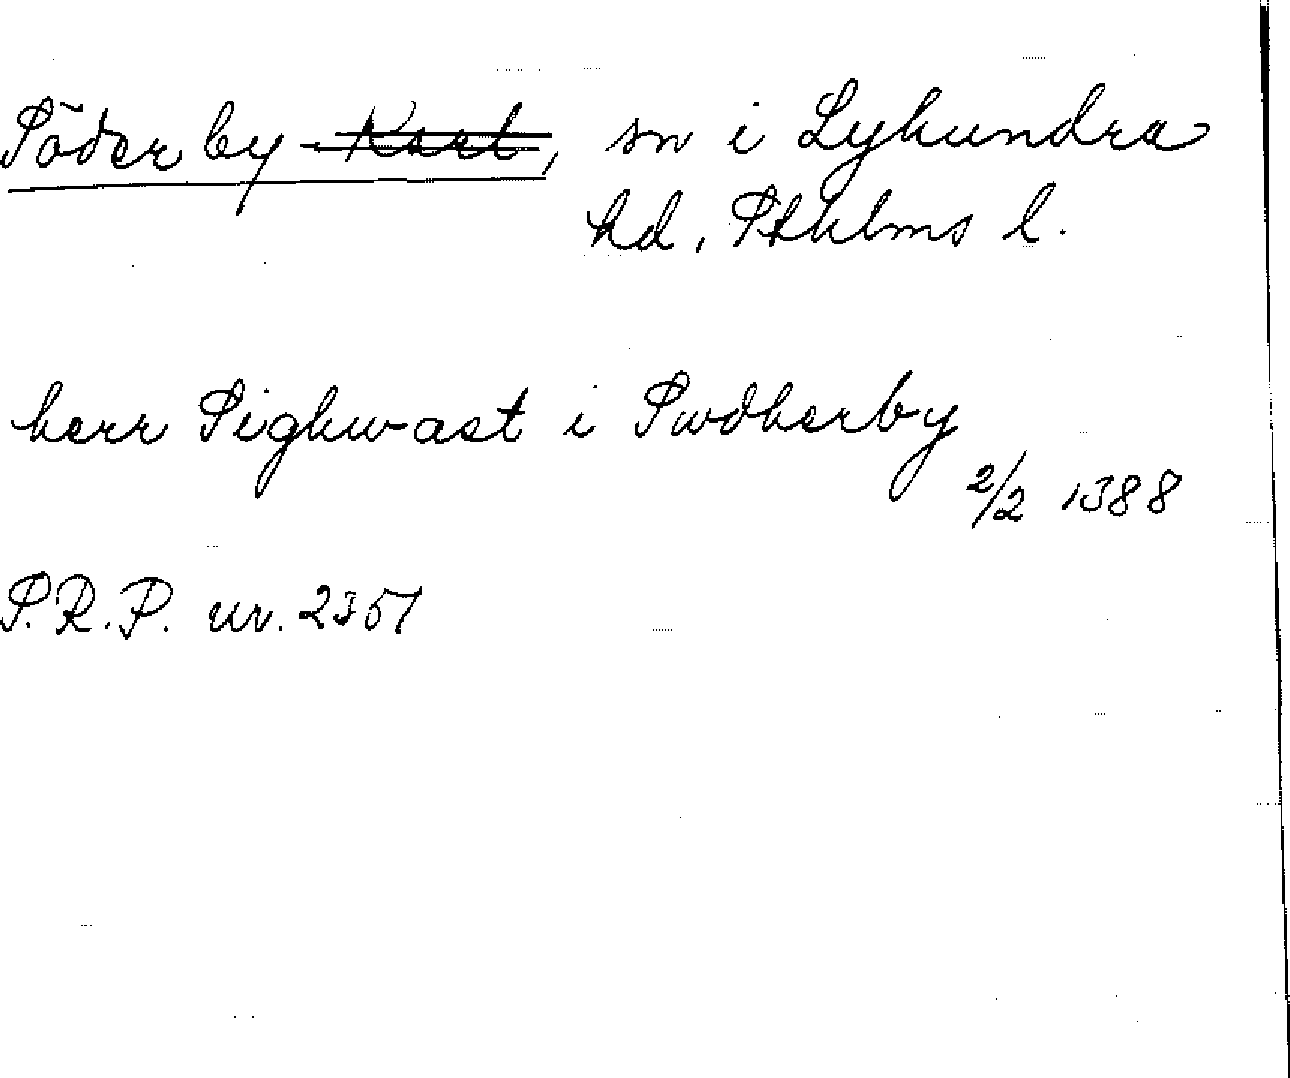 Söderby-Karl, sn i Lyhundra
hd, Sthlms l.
herr Sighwast i Swdherby
2/2 1388
S.R.P. nr. 2351